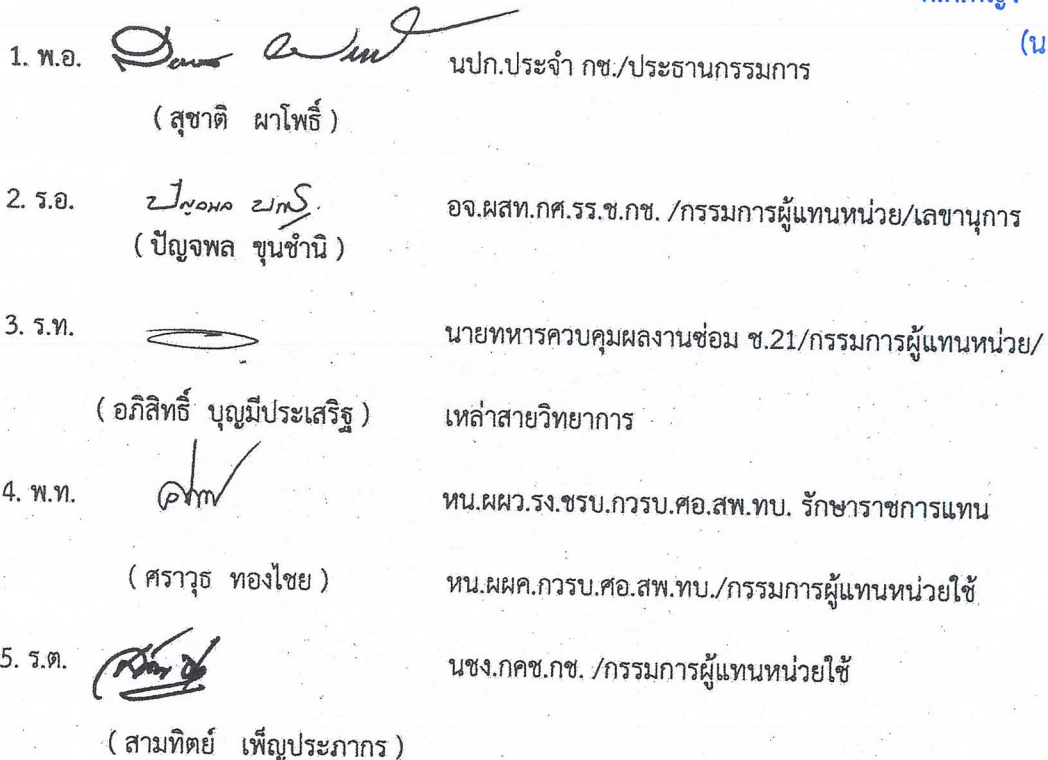 (น
1. พ.อ. นปก.ประจำ กช./ประธานกรรมการ
( สุชาติ ผาโพธิ์ )
2. ร.อ. อจ.ผสท.กศ.รร.ช.กช. /กรรมการผู้แทนหน่วย/เลขานุการ
( ปัญจพล ขุนชำนิ )
3. ร.ท. นายทหารควบคุมผลงานซ่อม ช.21/กรรมการผู้แทนหน่วย/
( อภิสิทธิ์ บุญมีประเสริฐ ) เหล่าสายวิทยาการ
4. พ.ท. หน.ผผว.รง.ซรบ.กวรบ.ศอ.สพ.ทบ. รักษาราชการแทน
( ศราวุธ ทองไชย ) หน.ผผค.กวรบ.ศอ.สพ.ทบ./กรรมการผู้แทนหน่วยใช้
5. ร.ต. นชง.กคช.กช. /กรรมการผู้แทนหน่วยใช้
( สามทิตย์ เพ็ญประภากร )